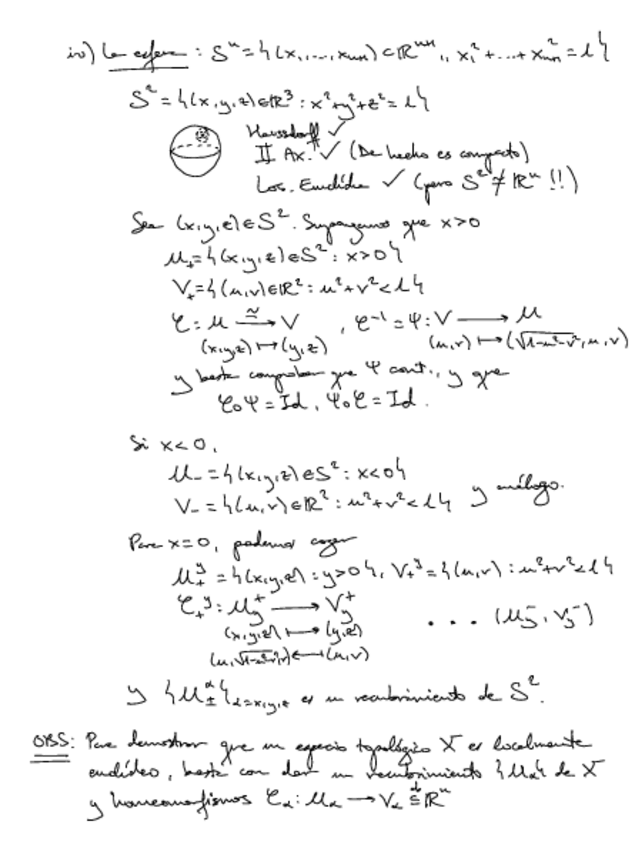 iv) La esfera : Sⁿ = {(x₁,...,xₙ₊₁) ⊂ ℝⁿ⁺¹ ,, x₁² + ... + xₙ₊₁² = 1}
S² = {(x,y,z) ∈ ℝ³ : x² + y² + z² = 1}
Haussdorff ✓
II Ax. ✓ (De hecho es compacto)
Loc. Euclídea ✓ (pero S² ≠ ℝⁿ !!)
Sea (x,y,z) ∈ S². Supongamos que x>0
U₊ = {(x,y,z) ∈ S² : x>0}
V₊ = {(u,v) ∈ ℝ² : u² + v² < 1}
φ : U ≅→ V , φ⁻¹ = ψ : V → U
(x,y,z) ↦ (y,z) (u,v) ↦ (√1-u²-v², u, v)
y basta comprobar que ψ cont., y que
φ∘ψ = Id, ψ∘φ = Id.
Si x<0,
U₋ = {(x,y,z) ∈ S² : x<0}
V₋ = {(u,v) ∈ ℝ² : u² + v² < 1} y análogo.
Para x=0, podemos coger
U₊ʸ = {(x,y,z) : y>0}, V₊ʸ = {(u,v) : u²+v²<1}
φ₊ʸ : U_y⁺ → V_y⁺
(x,y,z) ↦ (y,z) . . . (U_y⁻, V_y⁻)
(u,√1-u²-v²,v) ↤ (u,v)
y {U±^α}α=x,y,z es un recubrimiento de S².
OBS: Para demostrar que un espacio topológico X es localmente
euclídeo, basta con dar un recubrimiento {Uα} de X
y homeomorfismos φα : Uα → Vα ⊆ ℝⁿ